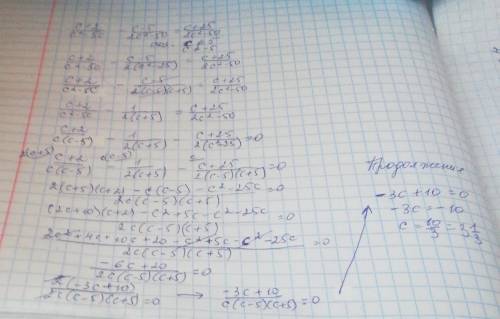 (c+2)/(c²-5c) - (c-5)/(2c²-50) = (c+25)/(2c²-50)
(c+2)/(c²-5c) - (c+5)/(2(c²-25)) = (c+25)/(2c²-50)
(c+2)/(c²-5c) - (c+5)/(2(c-5)(c+5)) = (c+25)/(2c²-50)
(c+2)/(c²-5c) - 1/(2(c+5)) = (c+25)/(2c²-50)
(c+2)/(c(c-5)) - 1/(2(c+5)) - (c+25)/(2(c²-25)) = 0
(c+2)/(c(c-5)) - 1/(2(c+5)) - (c+25)/(2(c-5)(c+5)) = 0
(2(c+5)(c+2) - c(c-5) - c² - 25c)/(2c(c-5)(c+5)) = 0
((2c+10)(c+2) - c² + 5c - c² - 25c)/(2c(c-5)(c+5)) = 0
(2c² + 4c + 10c + 20 - c² + 5c - c² - 25c)/(2c(c-5)(c+5)) = 0
(-6c + 20)/(2c(c-5)(c+5)) = 0
(2(-3c+10))/(2c(c-5)(c+5)) = 0 → (-3c+10)/(c(c-5)(c+5)) = 0
Продолжения
-3c + 10 = 0
-3c = -10
c = 10/3 = 3 1/3